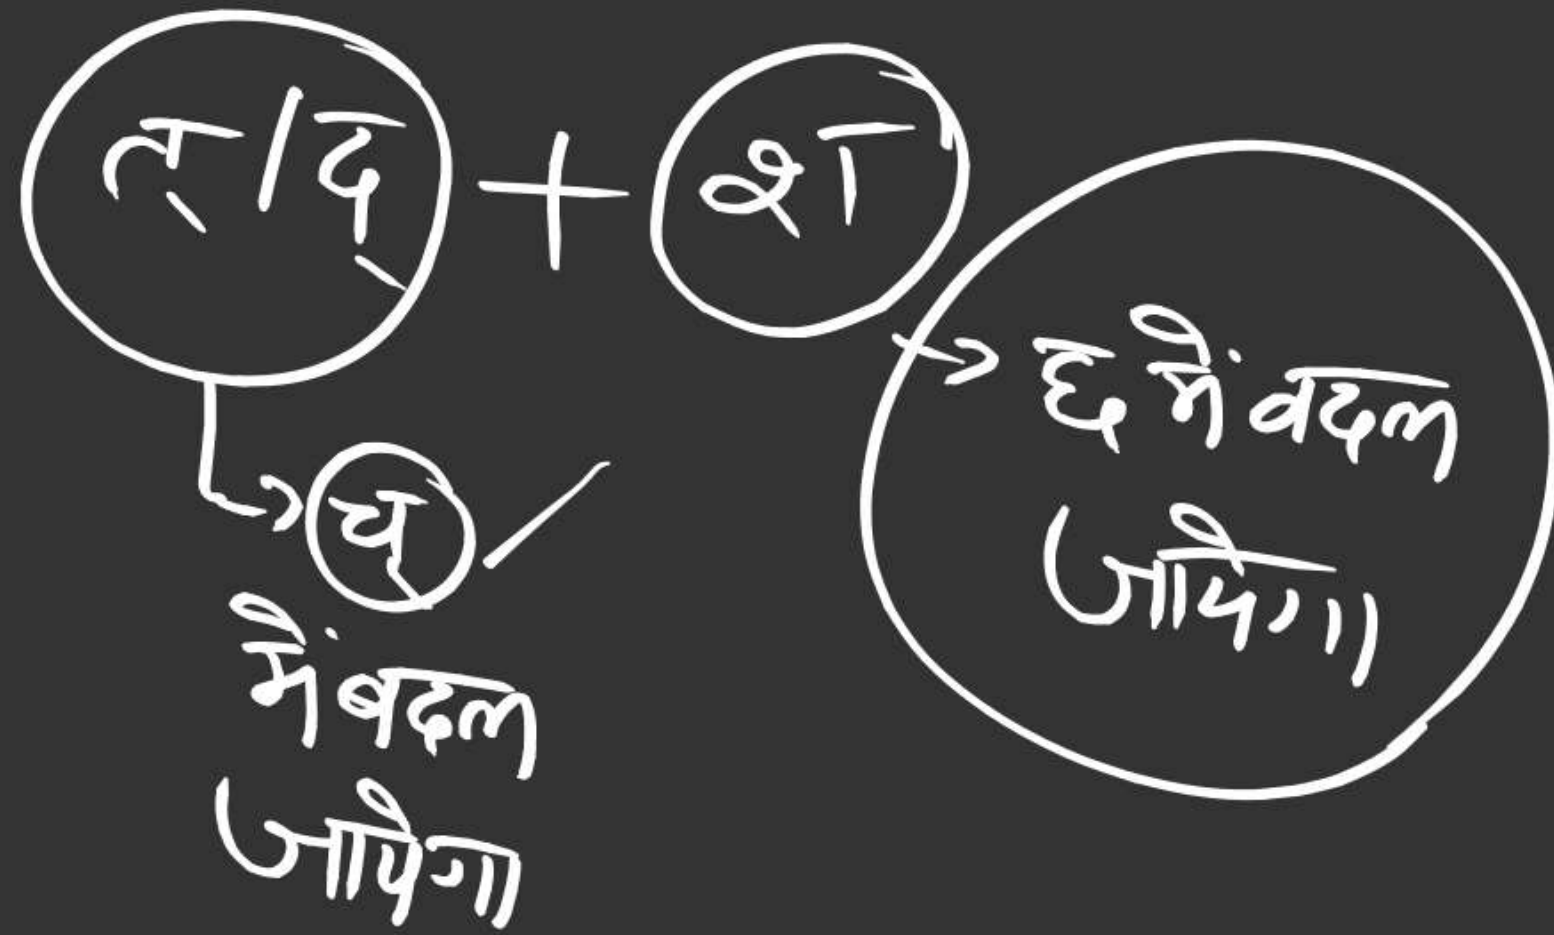 त्/द् + श
→ छ में बदल
जायेगा
→ च्
में बदल
जायेगा